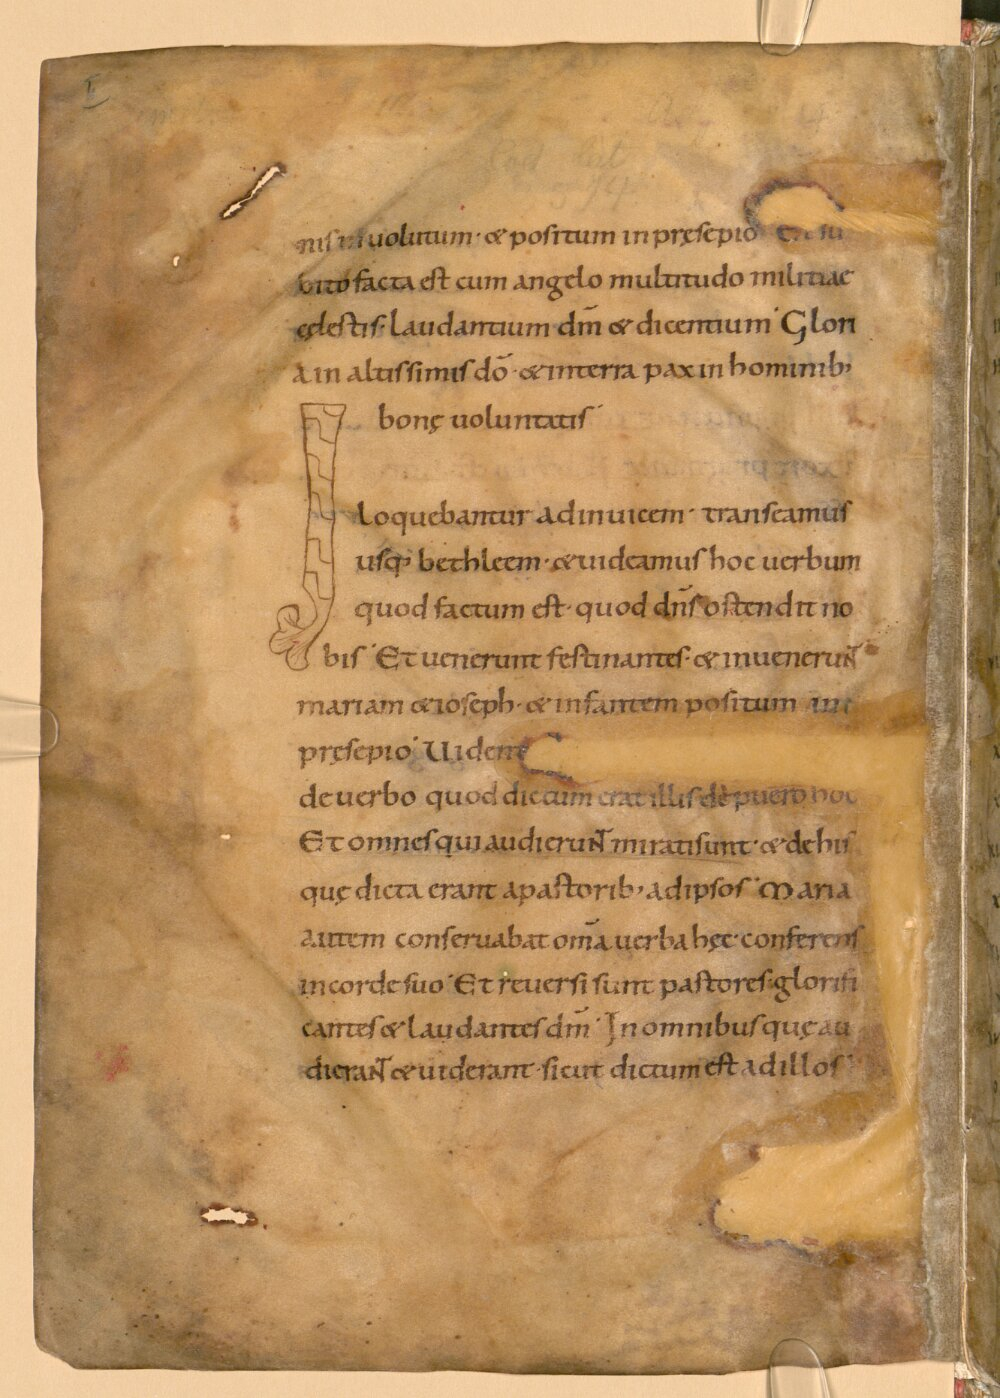 nis inuolutum· & positum in pręsepio Et su
bito facta est cum angelo multitudo militiae
cęlestis· laudantium dm̄ & dicentium· Glori
a in altissimis dō· & in terra pax in hominib;
bonę uoluntatis·
I loquebantur adinuicem· transeamus
usq; bethleem· & uideamus hoc uerbum
quod factum est· quod dn̄s ostendit no
bis· Et uenerunt festinantes· & inueneruNT
mariam & ioseph· & infantem positum in
pręsepio· Uident
de uerbo quod dictum erat illis de puero hoc
Et omnes qui audieruNT mirati sunt· & de his
quę dicta erant a pastorib; ad ipsos· Maria
autem conseruabat om̄a uerba hęc· conferens
in corde suo· Et reuersi sunt pastores· glorifi
cantes & laudantes dm̄· In omnibus quę au
dieraNT & uiderant· sicut dictum est ad illos·